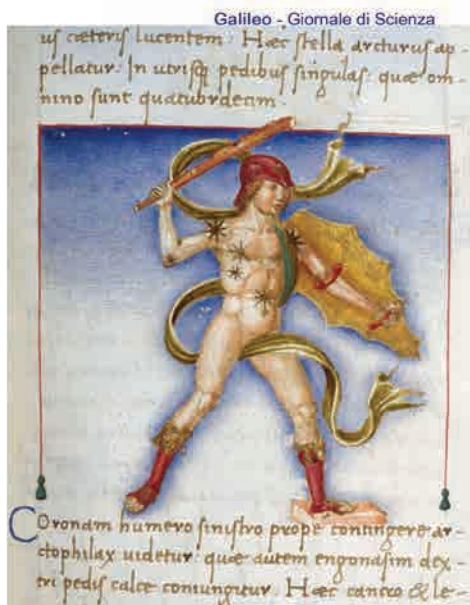 Galileo - Giornale di Scienza
us cæteris lucentem. Hæc stella arcturus ap-
pellatur. In utrisq pedibus singulas. quæ om-
nino sunt quatuordecim.
Coronam humero sinistro prope contingere ar-
ctophilax uidetur. quæ autem engonasim dex-
tri pedis calce coniungitur. Hæc cancro & le-